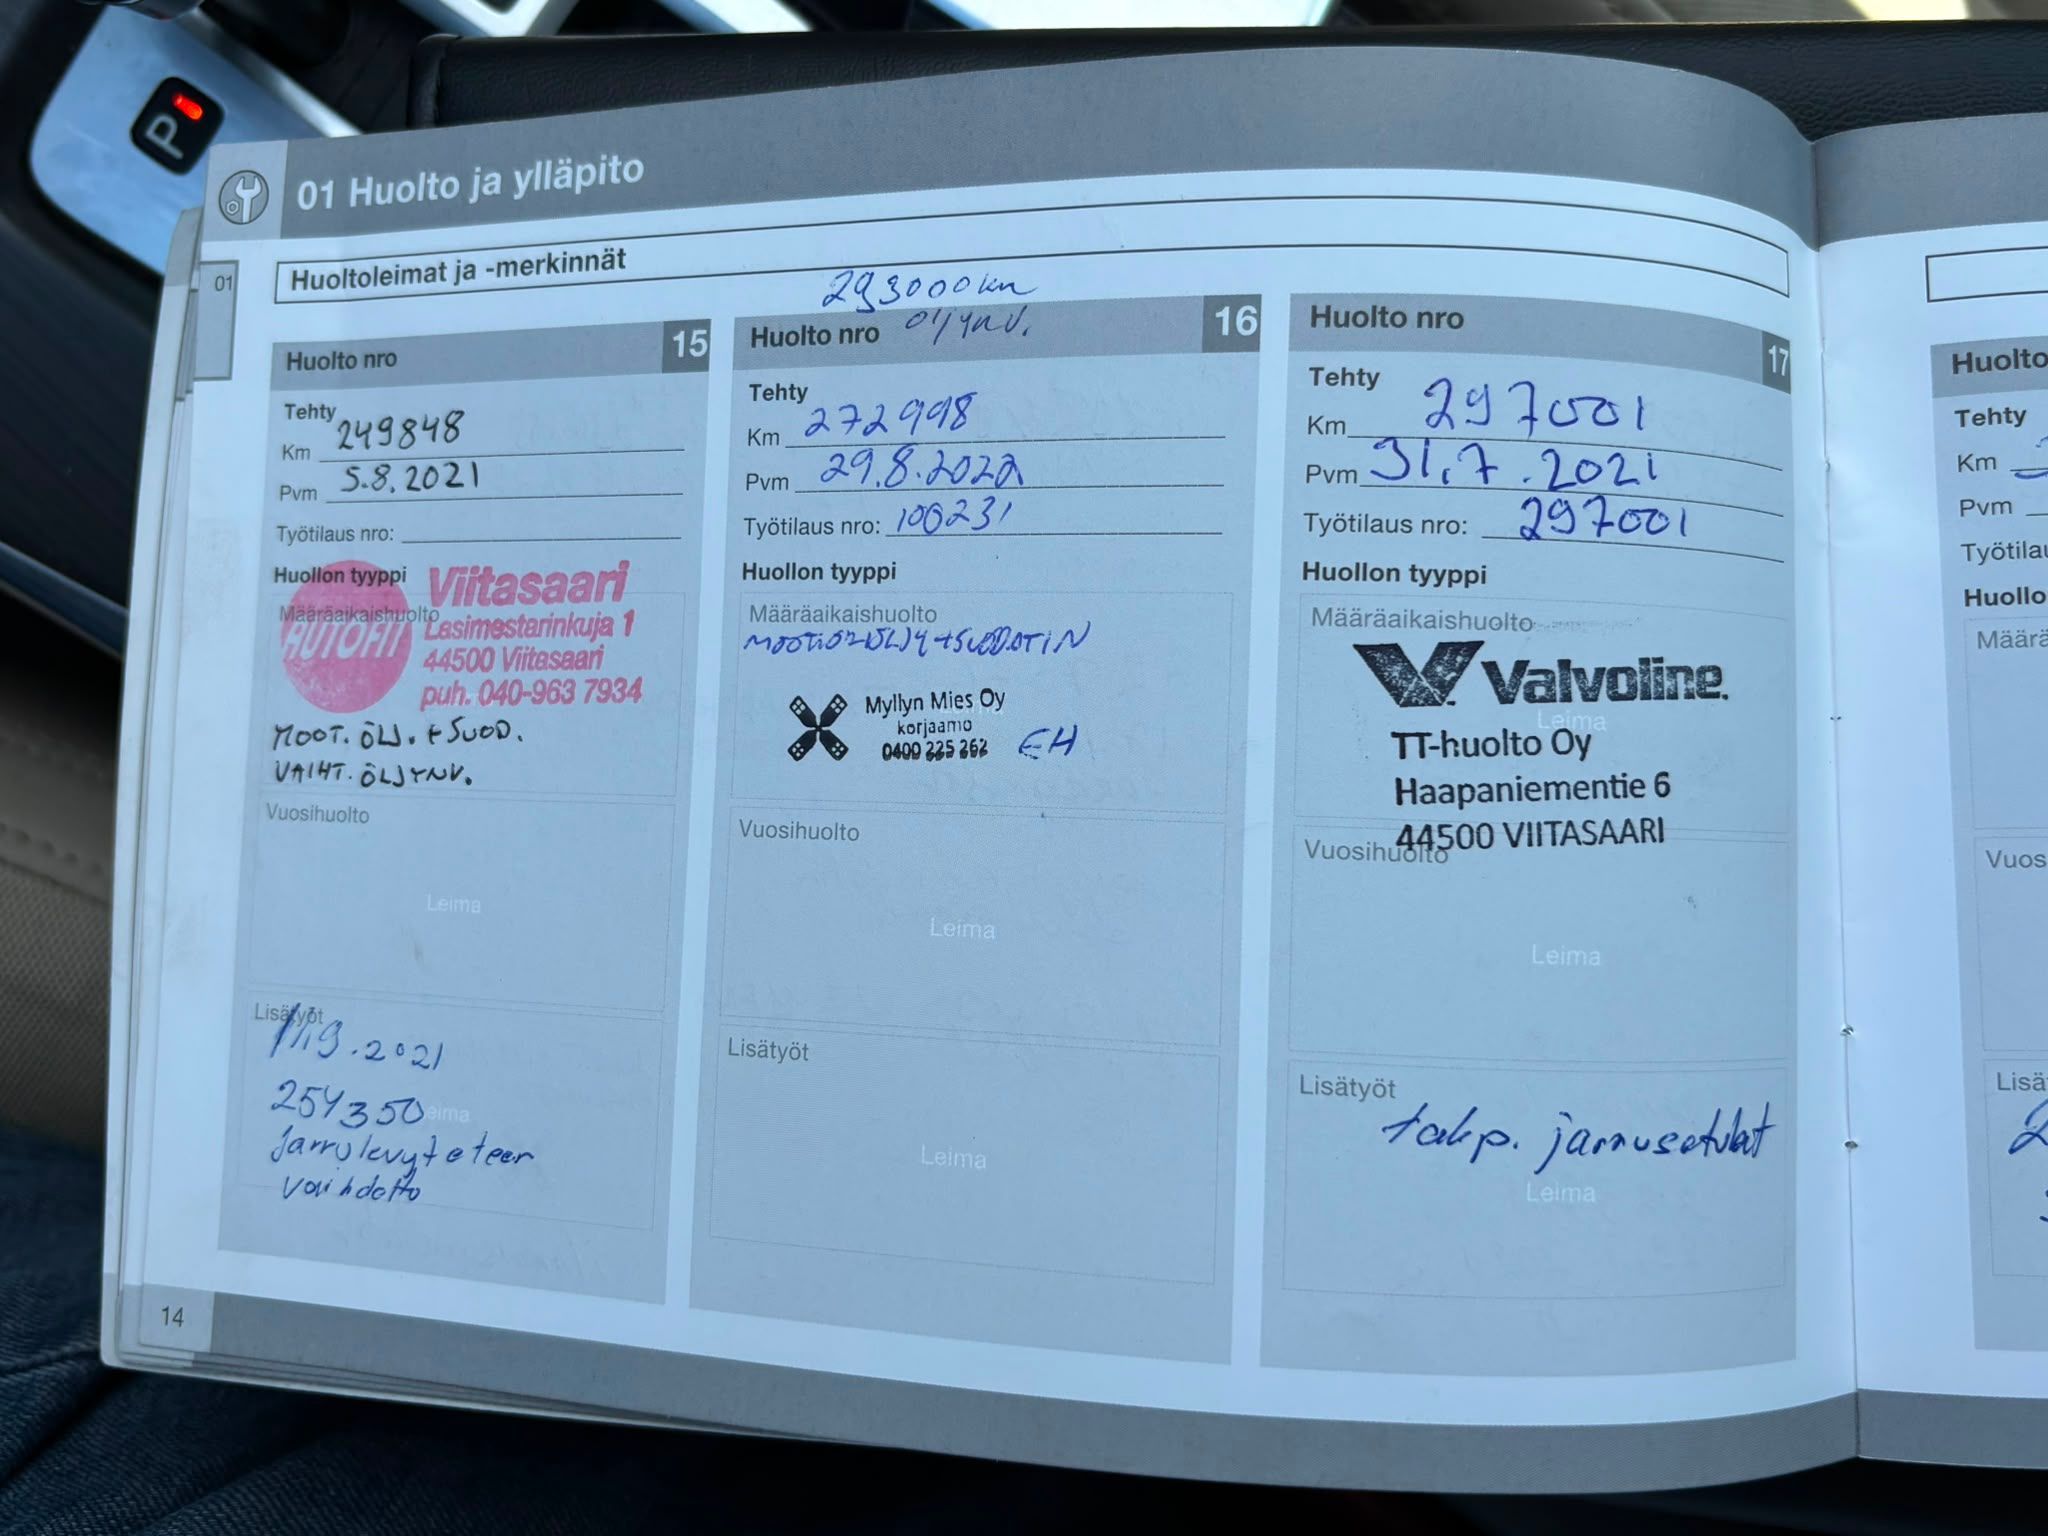 P
01 Huolto ja ylläpito
01
Huoltoleimat ja -merkinnät
Huolto nro 15
Tehty
Km 249848
Pvm 5.8.2021
Työtilaus nro:
Huollon tyyppi
Määräaikaishuolto
AUTOFIT
Viitasaari
Lasimestarinkuja 1
44500 Viitasaari
puh. 040-963 7934
MOOT. ÖLJ. + SUOD.
VAIHT. ÖLJYNV.
Vuosihuolto
Leima
Lisätyöt
11.9.2021
254350
Leima
Jarrulevyt eteen
vaihdettu
293000 km
Huolto nro öljynv. 16
Tehty
Km 272998
Pvm 29.8.2022
Työtilaus nro: 100231
Huollon tyyppi
Määräaikaishuolto
MOOTTORIÖLJY + SUODATIN
Myllyn Mies Oy
korjaamo
0400 225 262 EH
Vuosihuolto
Leima
Lisätyöt
Leima
Huolto nro 17
Tehty
Km 297001
Pvm 31.7.2021
Työtilaus nro: 297001
Huollon tyyppi
Määräaikaishuolto
Valvoline
Leima
TT-huolto Oy
Haapaniementie 6
44500 VIITASAARI
Vuosihuolto
Leima
Lisätyöt
takp. jarrusatulat
Leima
14
Huolto
Tehty
Km
Pvm